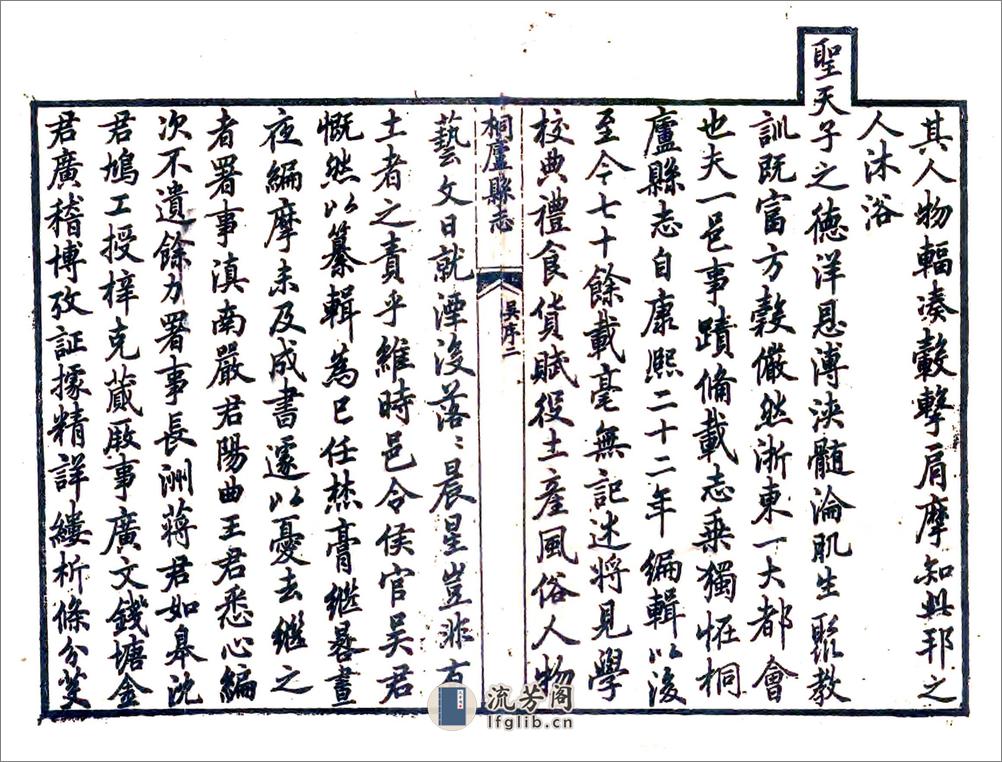 其人物輻湊轂擊肩摩知此邦之
人沐浴
聖天子之德洋恩溥浹髓淪肌生聚教
訓既富方穀儼然浙東一大都會
也夫一邑事蹟備載志乘獨恠桐
廬縣志自康熙二十二年編輯以後
至今七十餘載毫無記述將見學
校典禮食貨賦役土産風俗人物
桐廬縣志
吳序二
藝文日就湮沒落〻晨星豈非有
土者之責乎維時邑令侯官吳君
慨然以纂輯為己任焚膏繼晷晝
夜編摩未及成書遽以憂去繼之
者署事滇南嚴君陽曲王君悉心編
次不遺餘力署事長洲蔣君如皋沈
君鳩工授梓克蕆厥事廣文錢塘金
君廣稽博攷証據精詳縷析條分芟
流芳阁
lfglib.cn